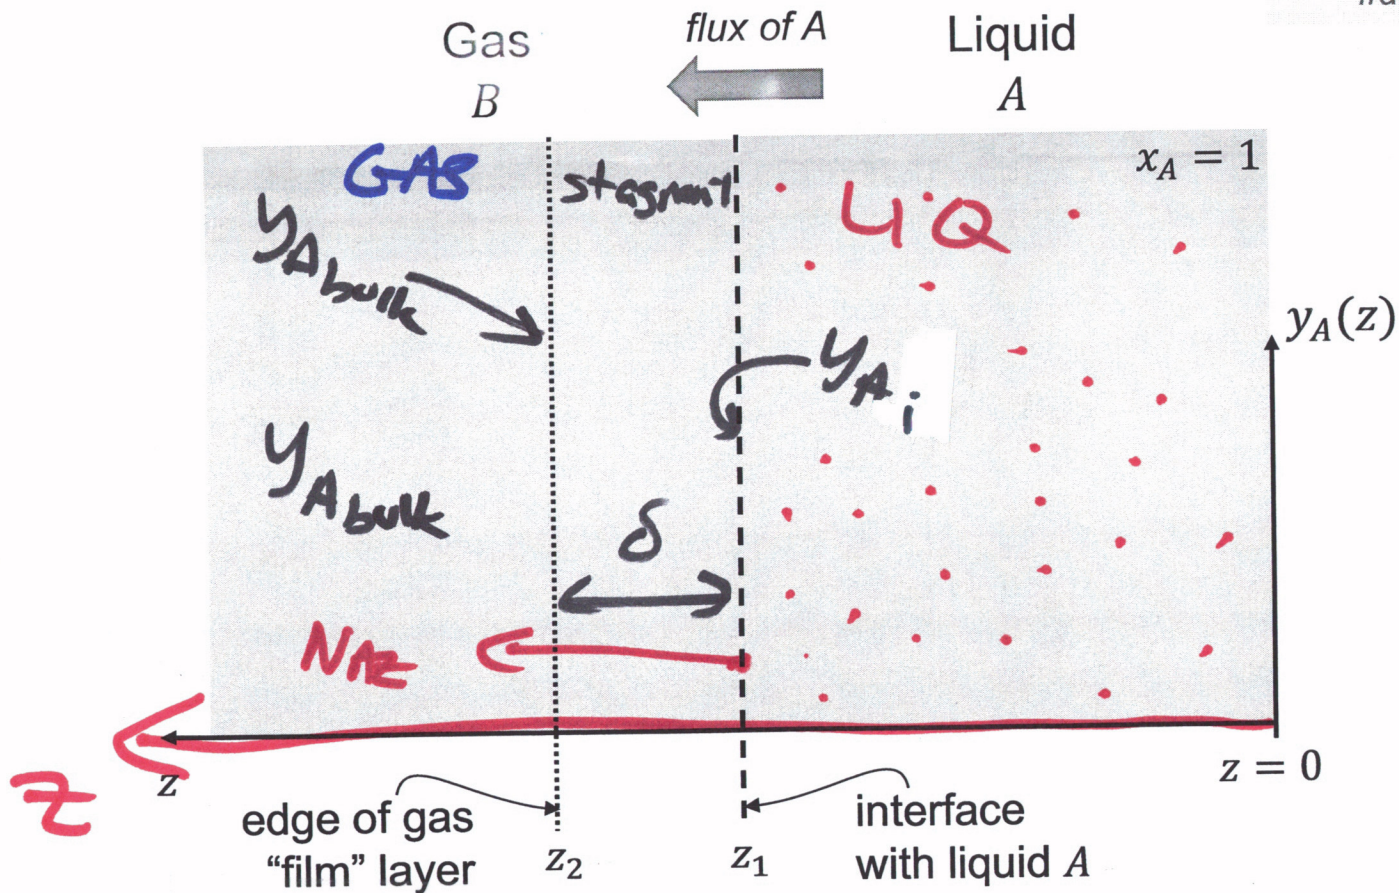 Gas
B
flux of A
Liquid
A
GAS
stagnant
x_A = 1
LIQ
y_A bulk
y_A i
y_A(z)
y_A bulk
δ
N_Az
z
z
z = 0
edge of gas
“film” layer
z_2
z_1
interface
with liquid A